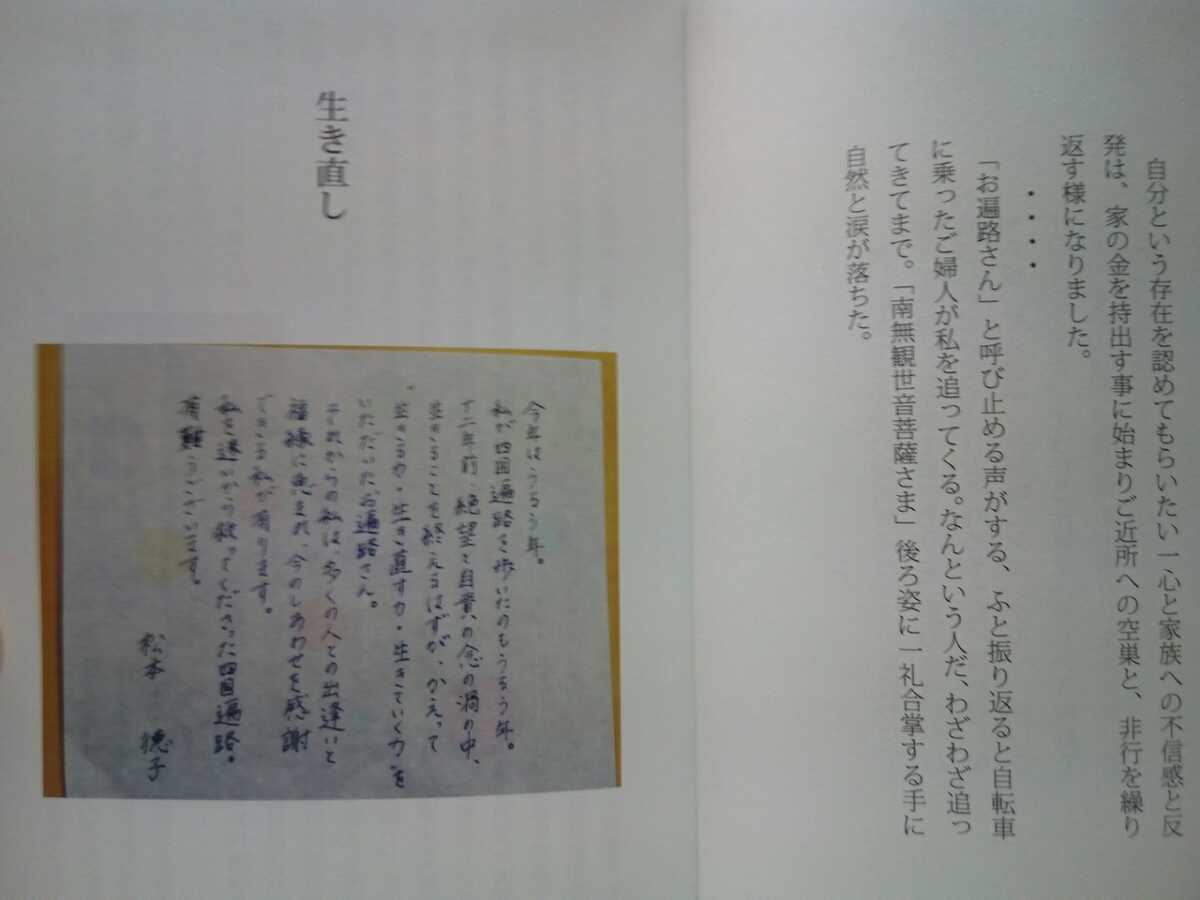 自分という存在を認めてもらいたい一心と家族への不信感と反
発は、家の金を持出す事に始まりご近所への空巣と、非行を繰り
返す様になりました。
・・・・
「お遍路さん」と呼び止める声がする、ふと振り返ると自転車
に乗ったご婦人が私を追ってくる。なんという人だ、わざわざ追っ
てきてまで。「南無観世音菩薩さま」後ろ姿に一礼合掌する手に
自然と涙が落ちた。
生き直し
今年はうるう年。
私が四国遍路を歩いたのもうるう年。
十二年前、絶望と自責の念の渦の中、
生きることを終えるはずが、かえって
"生きる力・生き直す力・生きていく力"を
いただいたお遍路さん。
それからの私は、多くの人との出逢いと
福縁に恵まれ、今のしあわせを感謝
できる私が有ります。
私を迷いから救ってくださった四国遍路。
有難うございます。
松本 德子